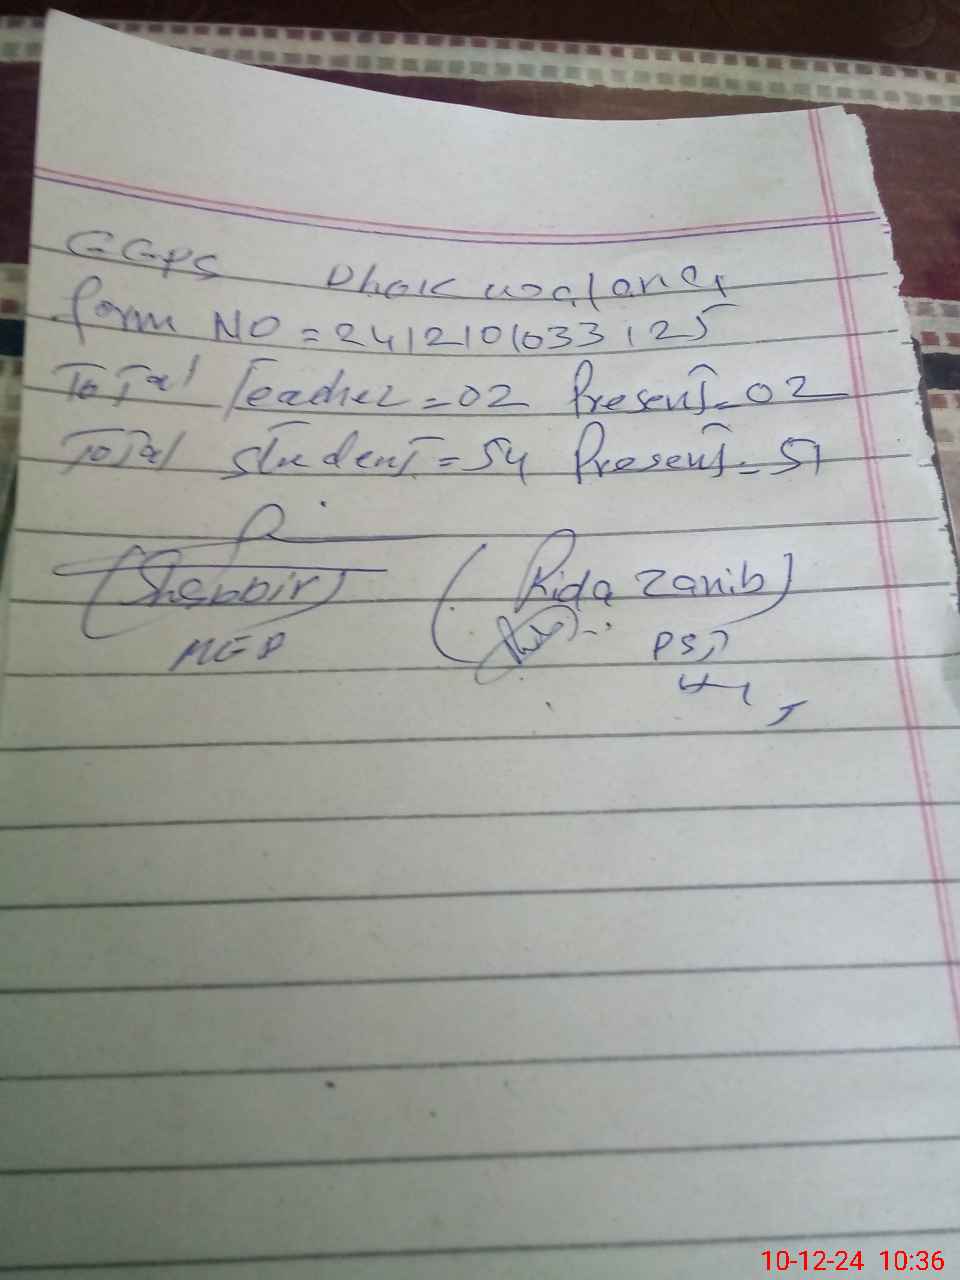 GGPS Dhok
form NO = 2412101633125
Total Teacher = 02 Present = 02
Total Student = 54 Present = 51
(Shabbir) (Rida Zanib)
PST
10-12-24 10:36